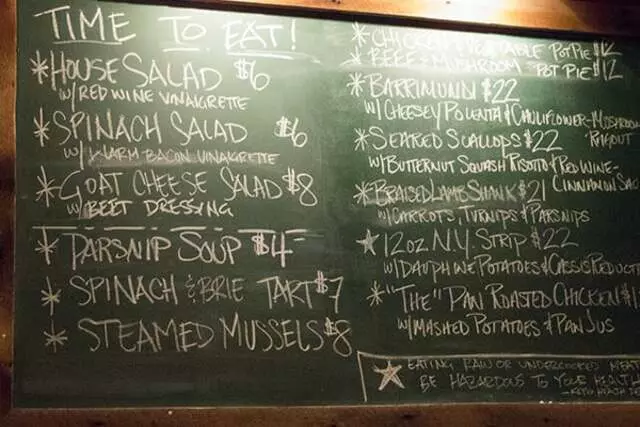 TIME TO EAT!
* HOUSE SALAD $6
W/ RED WINE VINAIGRETTE
* SPINACH SALAD $6
W/ WARM BACON VINAIGRETTE
* GOAT CHEESE SALAD $8
W/ BEET DRESSING
* PARSNIP SOUP $4
* SPINACH & BRIE TART $7
* STEAMED MUSSELS $8
* CHICKEN & VEGETABLE POT PIE $12
* BEEF & MUSHROOM POT PIE $12
* BARRIMUNDI $22
W/ CHEESEY POLENTA & CAULIFLOWER-MUSHROOM RAGOUT
* SEARED SCALLOPS $22
W/ BUTTERNUT SQUASH RISOTTO & RED WINE-CINNAMON
* BRAISED LAMB SHANK $21
W/ CARROTS, TURNIPS & PARSNIPS
* 12OZ N.Y. STRIP $22
W/ DAUPHINE POTATOES & CASSIS REDUCT
* "THE" PAN ROASTED CHICKEN
W/ MASHED POTATOES & PAN JUS
* EATING RAW OR UNDERCOOKED MEAT
BE HAZARDOUS TO YOUR HEALTH
HEALTH